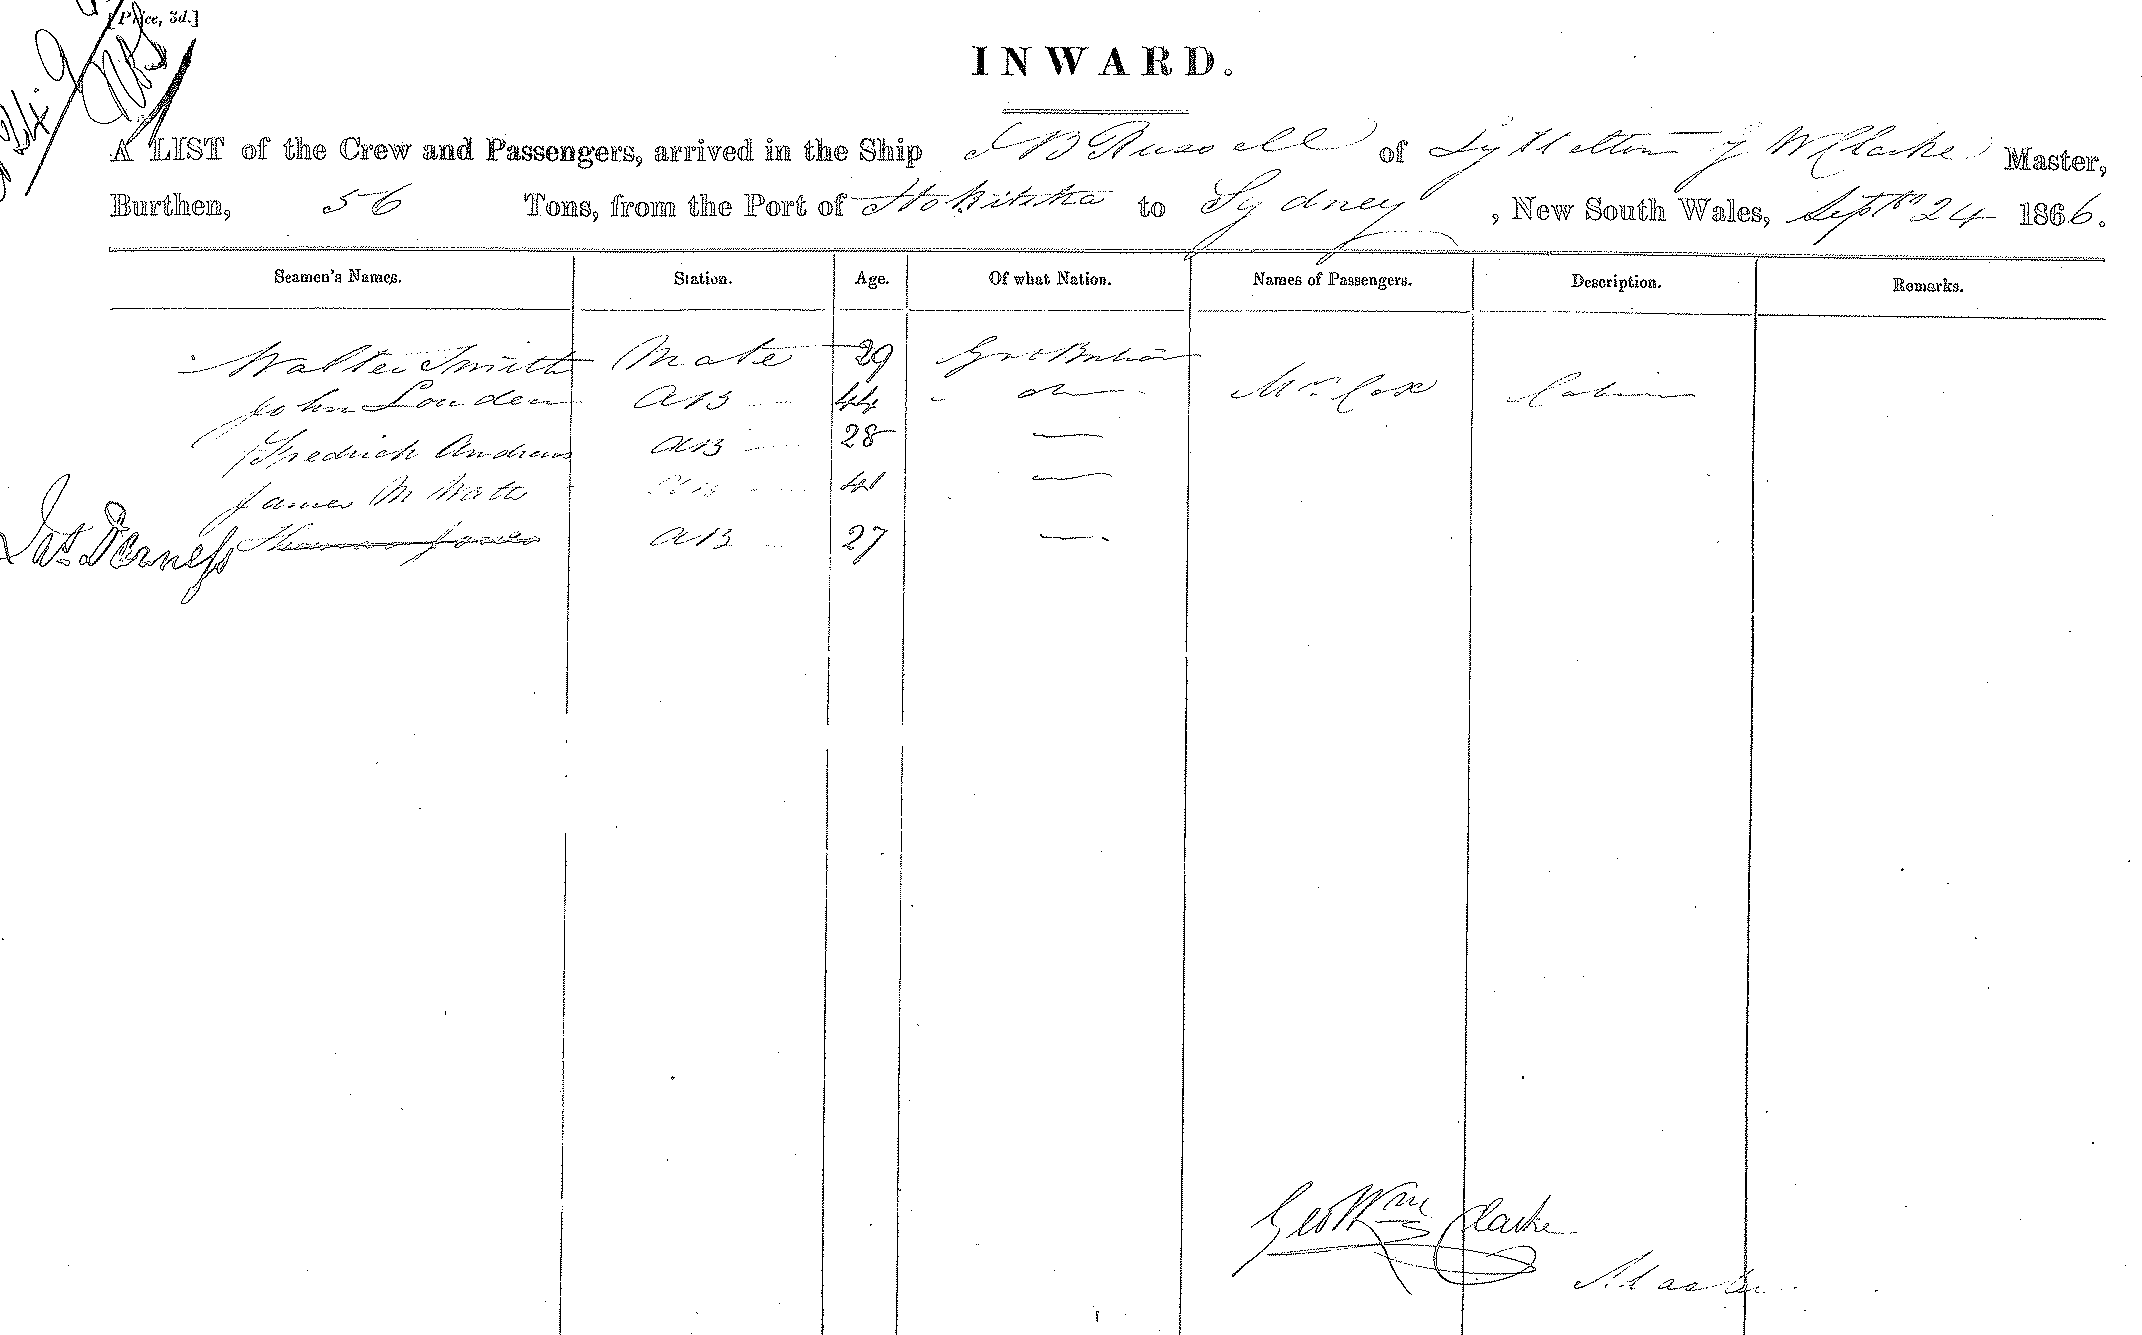 [Price, 3d.]
24. 9
INWARD.
A LIST of the Crew and Passengers, arrived in the Ship J B Russell of Lyttelton G W Clarke Master,
Burthen, 56 Tons, from the Port of Hokitika to Sydney, New South Wales, Septr 24 1866.
Seamen's Names. Station. Age. Of what Nation. Names of Passengers. Description. Remarks.
Walter Smith Mate 29 Great Britain
John Louden AB 44 do Mr. Cox Cabin
Fredrick Andrews AB 28 —
James M Watt AB 41 —
Jas Derness Thomas Jones AB 27 —
Geo Wm Clarke
Master